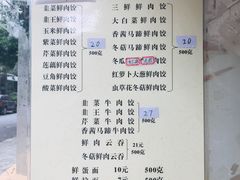 韭菜鲜肉饺
韭王鲜肉饺
玉米鲜肉饺
芹菜鲜肉饺
豆藕鲜肉饺
豆角鲜肉饺
酸菜鲜肉饺
20
500克
三鲜鲜肉饺
大白菜鲜肉饺
香茜马蹄鲜肉饺
冬菇马蹄鲜肉饺
冬瓜
红萝卜大葱鲜肉饺
虫草花冬菇鲜肉饺
20
500克
韭菜牛肉饺
韭王牛肉饺
芹菜牛肉饺
香茜马蹄牛肉饺
27
500克
鲜肉云吞
冬菇鲜肉云吞
21元
500克
鲜蛋面 10元 500克